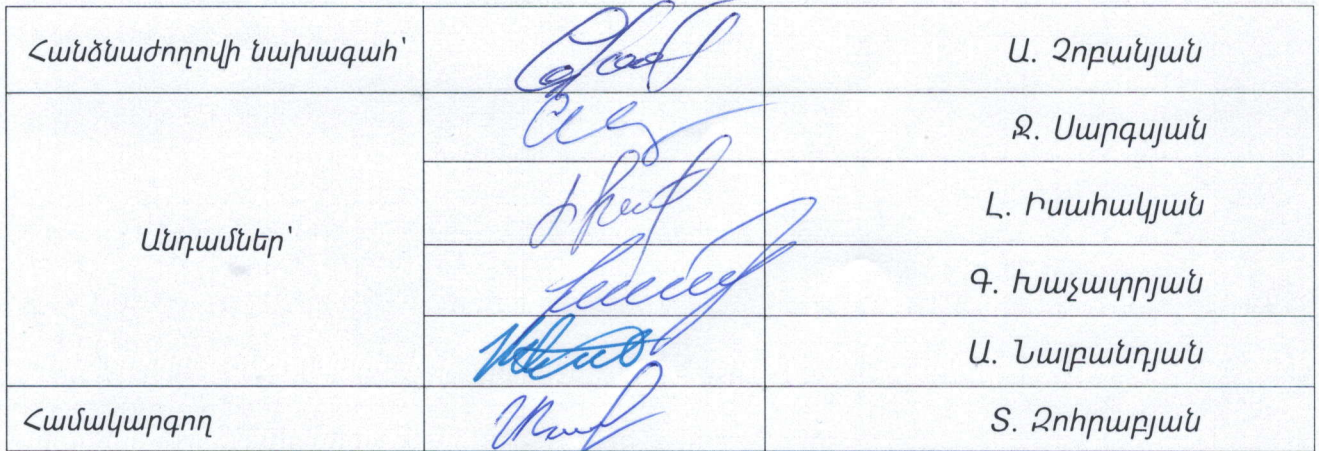 Հանձնաժողովի նախագահ՝ Ա. Չոբանյան
Ջ. Սարգսյան
Լ. Իսահակյան
Անդամներ՝
Գ. Խաչատրյան
Ա. Նալբանդյան
Համակարգող Տ. Զոհրաբյան